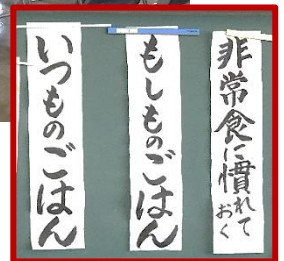 非常食に慣れて
おく
もしものごはん
いつものごはん